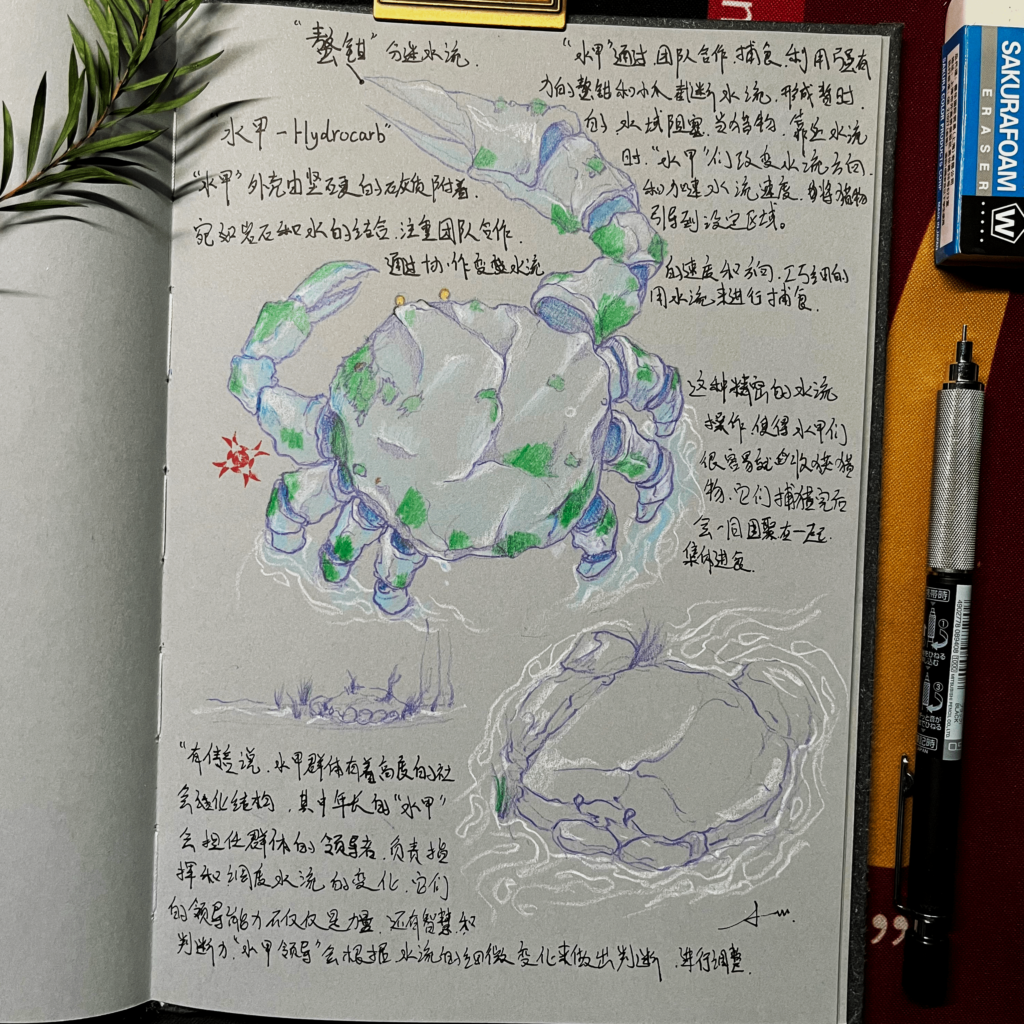 "螯钳"分逆水流.
"水甲-Hydrocarb"
"水甲"外壳由坚硬的石灰质附着.
宛如岩石和水的结合.注重团队合作.
通过协作变换水流
"水甲"通过团队合作捕食.利用强有
力的螯钳和小爪截断水流,形成暂时
的水域阻塞.当猎物靠近水流
时."水甲"们改变水流方向.
和加速水流速度.将猎物
引导到设定区域。
的速度和方向.巧妙的
用水流来进行捕食.
这种精密的水流
操作,使得水甲们
很容易就收获猎
物.它们捕猎完后
会一同围聚在一起.
集体进食.
"有传言说,水甲群体有着高度的社
会趋化结构,其中年长的"水甲"
会担任群体的领导者.负责指
挥和调度水流的变化.它们
的领导能力不仅仅是力量.还有智慧和
判断力."水甲领导"会根据水流的细微变化来做出判断,进行调整.
SAKURA FOAM
ERASER
SAKURA COLOR PRODUCTS CORP.
W